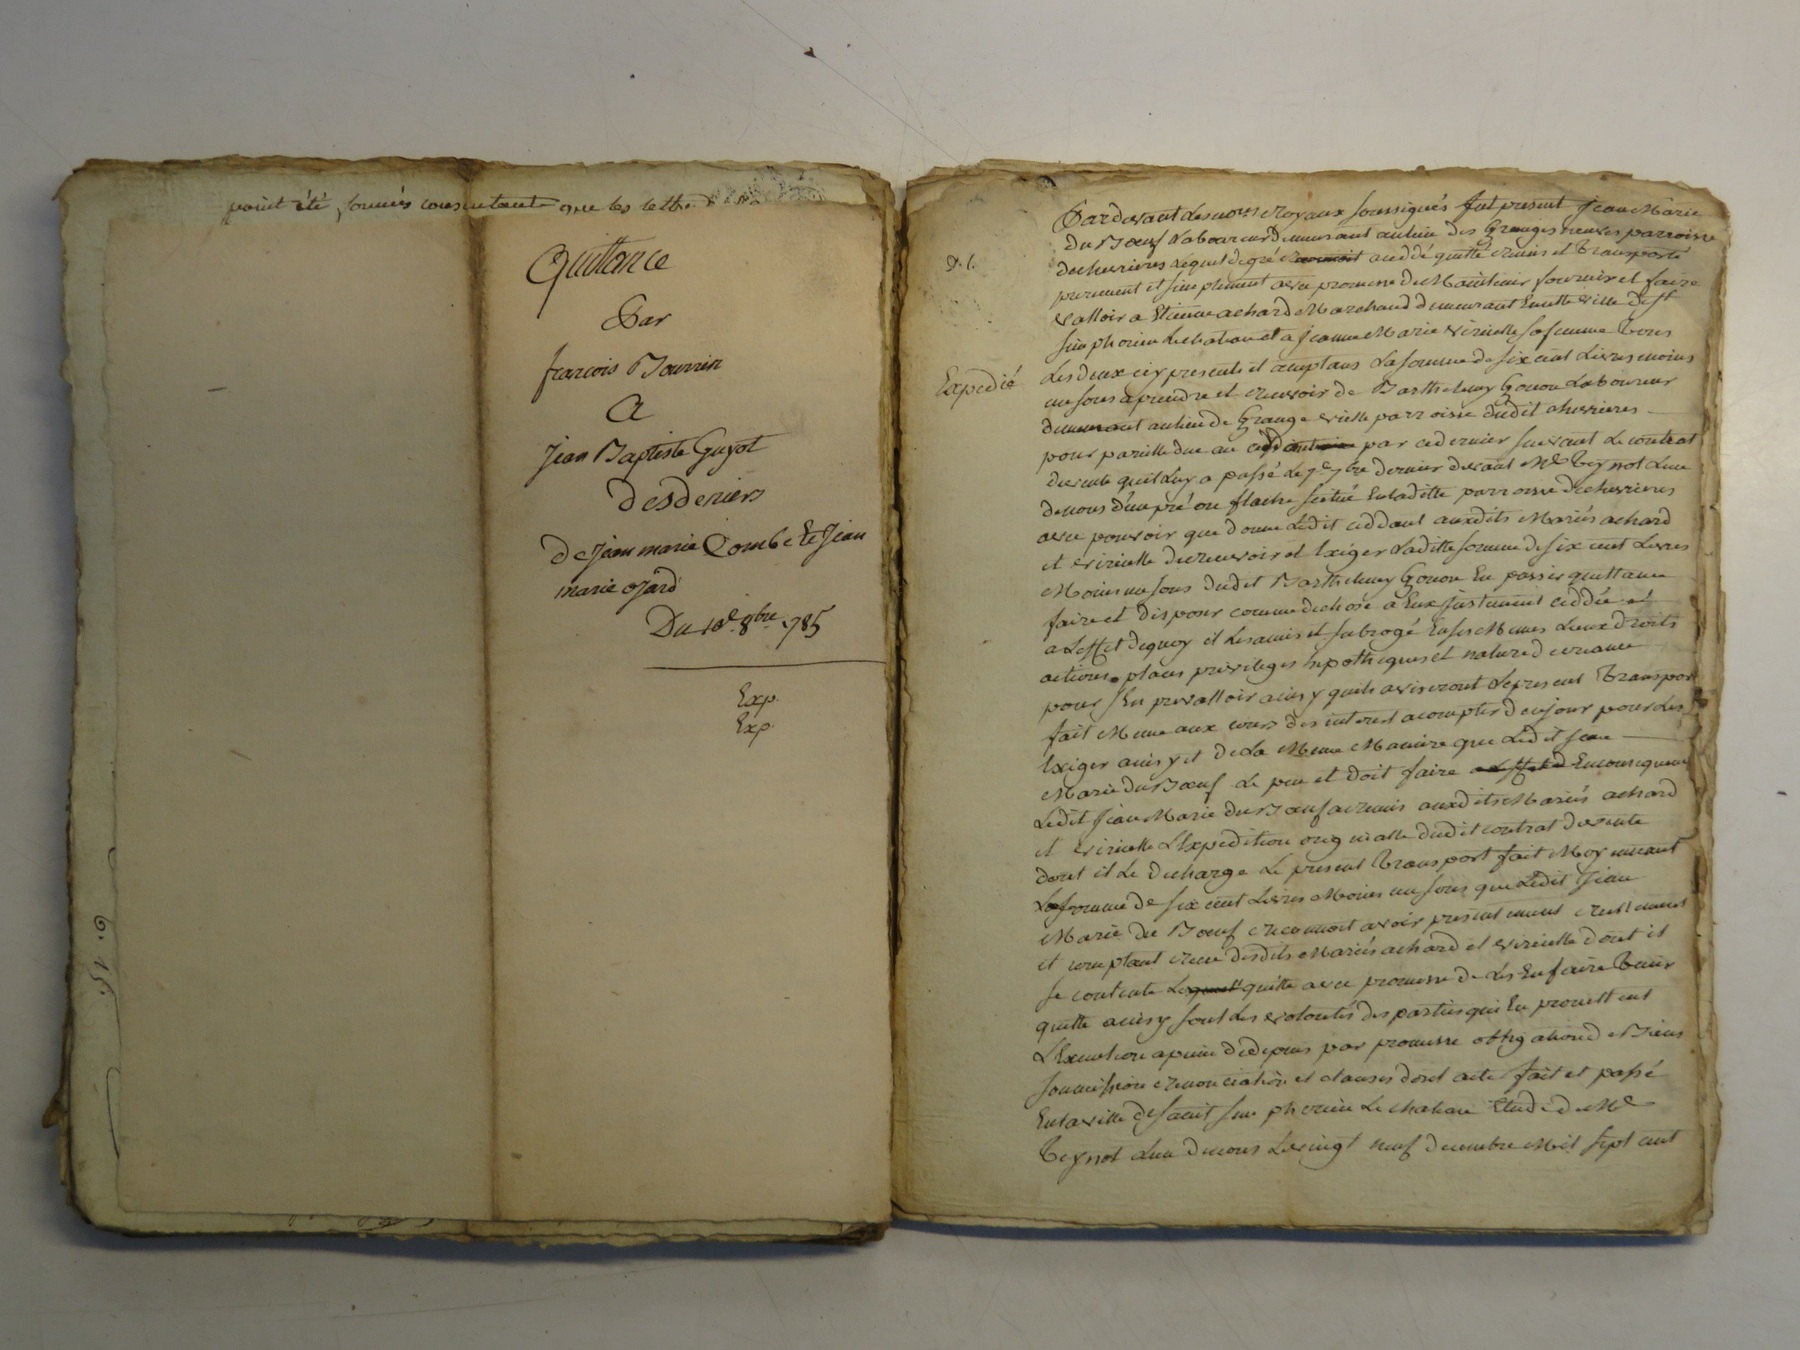 point été, fournies consentant que les lettres
Quittance
Par
francois Bourrin
A
Jean Baptiste Guyot
des deniers
de Jean marie Combe Et Jean
marie ojard
Du 10e 8bre 785
Exp.
Exp.
6. 15.
Pardevant Les nores Royaux soussignés fut present Jean Marie
Du Boeuf Laboureur demeurant au lieu des Granges neuves parroisse
de chevrieres Lequel de gré a ceddé quitté remis et Transporté
g. l.
purement et simplement avec promesse de Maintenir fournir et faire
valloir a Etienne achard Marchand demeurant En cette ville de St
simphorien Le chateau et a Jeanne Marie viricelle sa femme Tous
Les deux icy presents et acceptans La somme de six cent Livres moins
Expedié
un sous a prendre et recevoir de Barthelemy Gonon Laboureur
demeurant au lieu de Grange vielle parroisse dudit chevrieres
pour pareille due au ceddant par ce dernier suivant Le contrat
de vente quil Luy a passé Le 7e 7bre dernier devant Me Teynot L'un
de nous d'un pré ou flache scitué En Laditte parroisse de chevrieres
avec pouvoir que donne Ledit ceddant auxdits Mariés achard
et viricelle de recevoir et Exiger Laditte somme de six cent Livres
Moins un sous dudit Barthelemy Gonon En passer quittance
faire et disposer comme de chose a Eux justement ceddée et
a L'effet de quoy il Les a mis et subrogé En ses Memes Lieux droits
actions places privileges hipotheques et nature de creance
pour s'En prevalloir ainsy quils aviseront Le present Transport
fait Meme aux cours des interest a compter de ce jour pour Les
Exiger ainsy et de La Meme Maniere que Ledit Jean
Marie du Boeuf Le peu et doit faire En consequence
Ledit Jean Marie du Boeuf a remis auxdits Mariés achard
et viricelle L'Expedition originalle dudit contrat de vente
dont il Le decharge Le present Transport fait Moyennant
La somme de six cent Livres Moins un sous que Ledit Jean
Marie du Boeuf reconnoit avoir presentement reellement
et comptant receu desdits Mariés achard et viricelle dont il
se contente Les quitte avec promesse de Les En faire Tenir
quitte ainsy sont Les volontés des parties qui En promettent
L'Execution a peine de depens par promesse obligation de Biens
soumission renonciation et clauses dont acte fait et passé
En La ville de saint simphorien Le chateau Etude de Me
Teynot L'un de nous Le vingt neuf decembre Mil sept cent